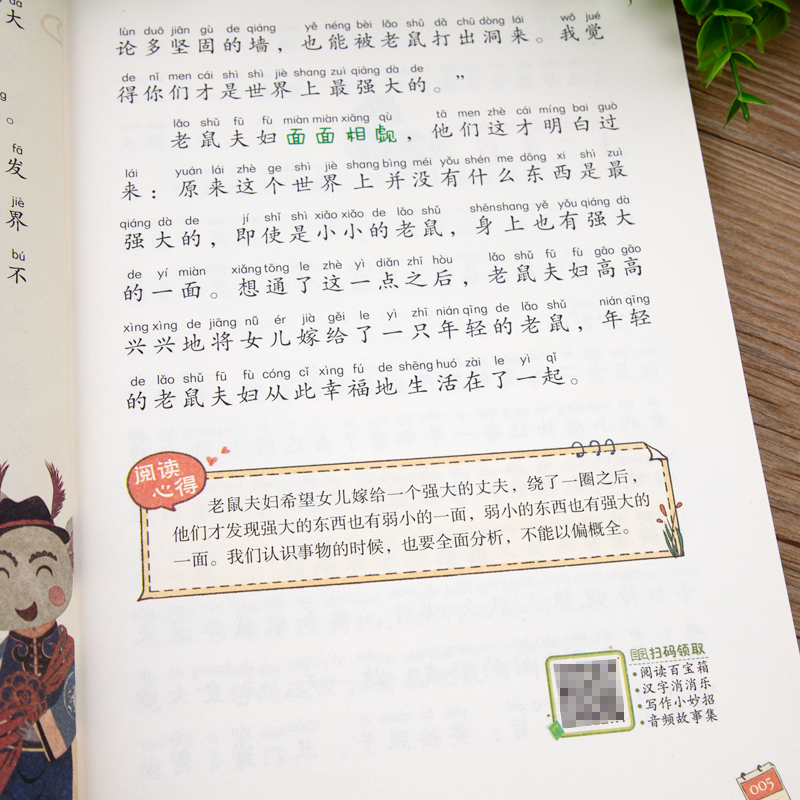 大
。
fā
发
jiè
界
bú
不
lùn duō jiān gù de qiáng yě néng bèi lǎo shǔ dǎ chū dòng lái wǒ jué
论多坚固的墙，也能被老鼠打出洞来。我觉
de nǐ men cái shì shì jiè shang zuì qiáng dà de
得你们才是世界上最强大的。”
lǎo shǔ fū fù miàn miàn xiāng qù tā men zhè cái míng bai guò
老鼠夫妇面面相觑，他们这才明白过
lái yuán lái zhè ge shì jiè shang bìng méi yǒu shén me dōng xi shì zuì
来：原来这个世界上并没有什么东西是最
qiáng dà de jí shǐ shì xiǎo xiǎo de lǎo shǔ shēn shang yě yǒu qiáng dà
强大的，即使是小小的老鼠，身上也有强大
de yí miàn xiǎng tōng le zhè yì diǎn zhī hòu lǎo shǔ fū fù gāo gāo
的一面。想通了这一点之后，老鼠夫妇高高
xìng xìng de jiāng nǚ ér jià gěi le yì zhī nián qīng de lǎo shǔ nián qīng
兴兴地将女儿嫁给了一只年轻的老鼠，年轻
de lǎo shǔ fū fù cóng cǐ xìng fú de shēng huó zài le yì qǐ
的老鼠夫妇从此幸福地生活在了一起。
阅读
心得
老鼠夫妇希望女儿嫁给一个强大的丈夫，绕了一圈之后，
他们才发现强大的东西也有弱小的一面，弱小的东西也有强大的
一面。我们认识事物的时候，也要全面分析，不能以偏概全。
扫码领取
•阅读百宝箱
•汉字消消乐
•写作小妙招
•音频故事集
005